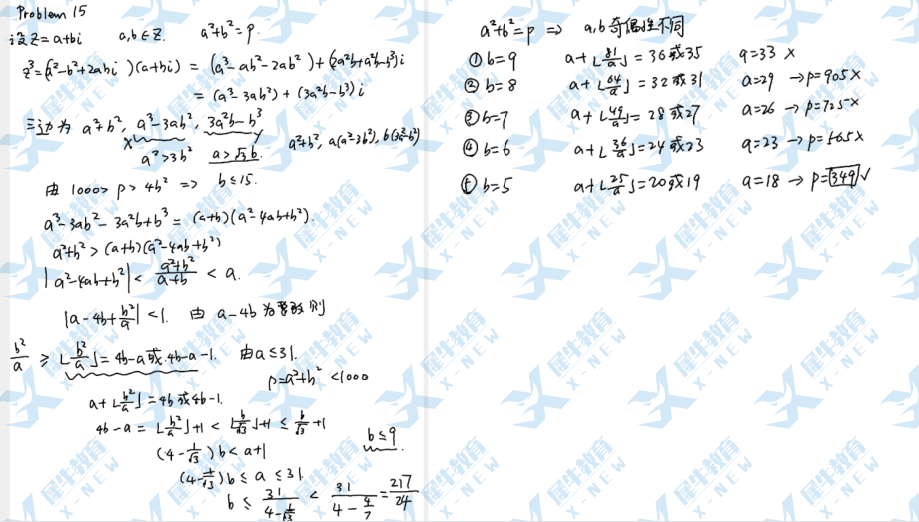 Problem 15
设Z=a+bi  a,b∈Z.  a²+b²=p.
z³=(a²-b²+2abi)(a+bi) = (a³-ab²-2ab²)+(2a²b+a²b-b³)i
= (a³-3ab²)+(3a²b-b³)i
三边为 a²+b², a³-3ab², 3a²b-b³
a²>3b²  a>√3b.  a²+b², a(a²-3b²), b(3a²-b²)
由 1000>p>4b² => b≤15.
a³-3ab²-3a²b+b³=(a+b)(a²-4ab+b²).
a²+b²>(a+b)(a²-4ab+b²)
|a²-4ab+b²|<\frac{a²+b²}{a+b}<a.
|a-4b+\frac{b²}{a}|<1. 由 a-4b为整数则
\frac{b²}{a}≥⌊\frac{b²}{a}⌋=4b-a或4b-a-1. 由a≤31.
p=a²+b²<1000
a+⌊\frac{b²}{a}⌋=4b或4b-1.
4b-a=⌊\frac{b²}{a}⌋+1<⌊\frac{b}{√3}⌋+1≤\frac{b}{√3}+1
(4-\frac{1}{√3})b<a+1  b≤9
(4-\frac{1}{√3})b≤a≤31.
b≤\frac{31}{4-\frac{1}{√3}}<\frac{31}{4-\frac{4}{7}}=\frac{217}{24}
a²+b²=p => a,b奇偶性不同
①b=9  a+⌊\frac{81}{a}⌋=36或35  a=33 ×
②b=8  a+⌊\frac{64}{a}⌋=32或31  a=29 →p=905×
③b=7  a+⌊\frac{49}{a}⌋=28或27  a=26 →p=725×
④b=6  a+⌊\frac{36}{a}⌋=24或23  a=23→p=565×
⑤b=5  a+⌊\frac{25}{a}⌋=20或19  a=18 →p=349√
犀牛教育
X-NEW